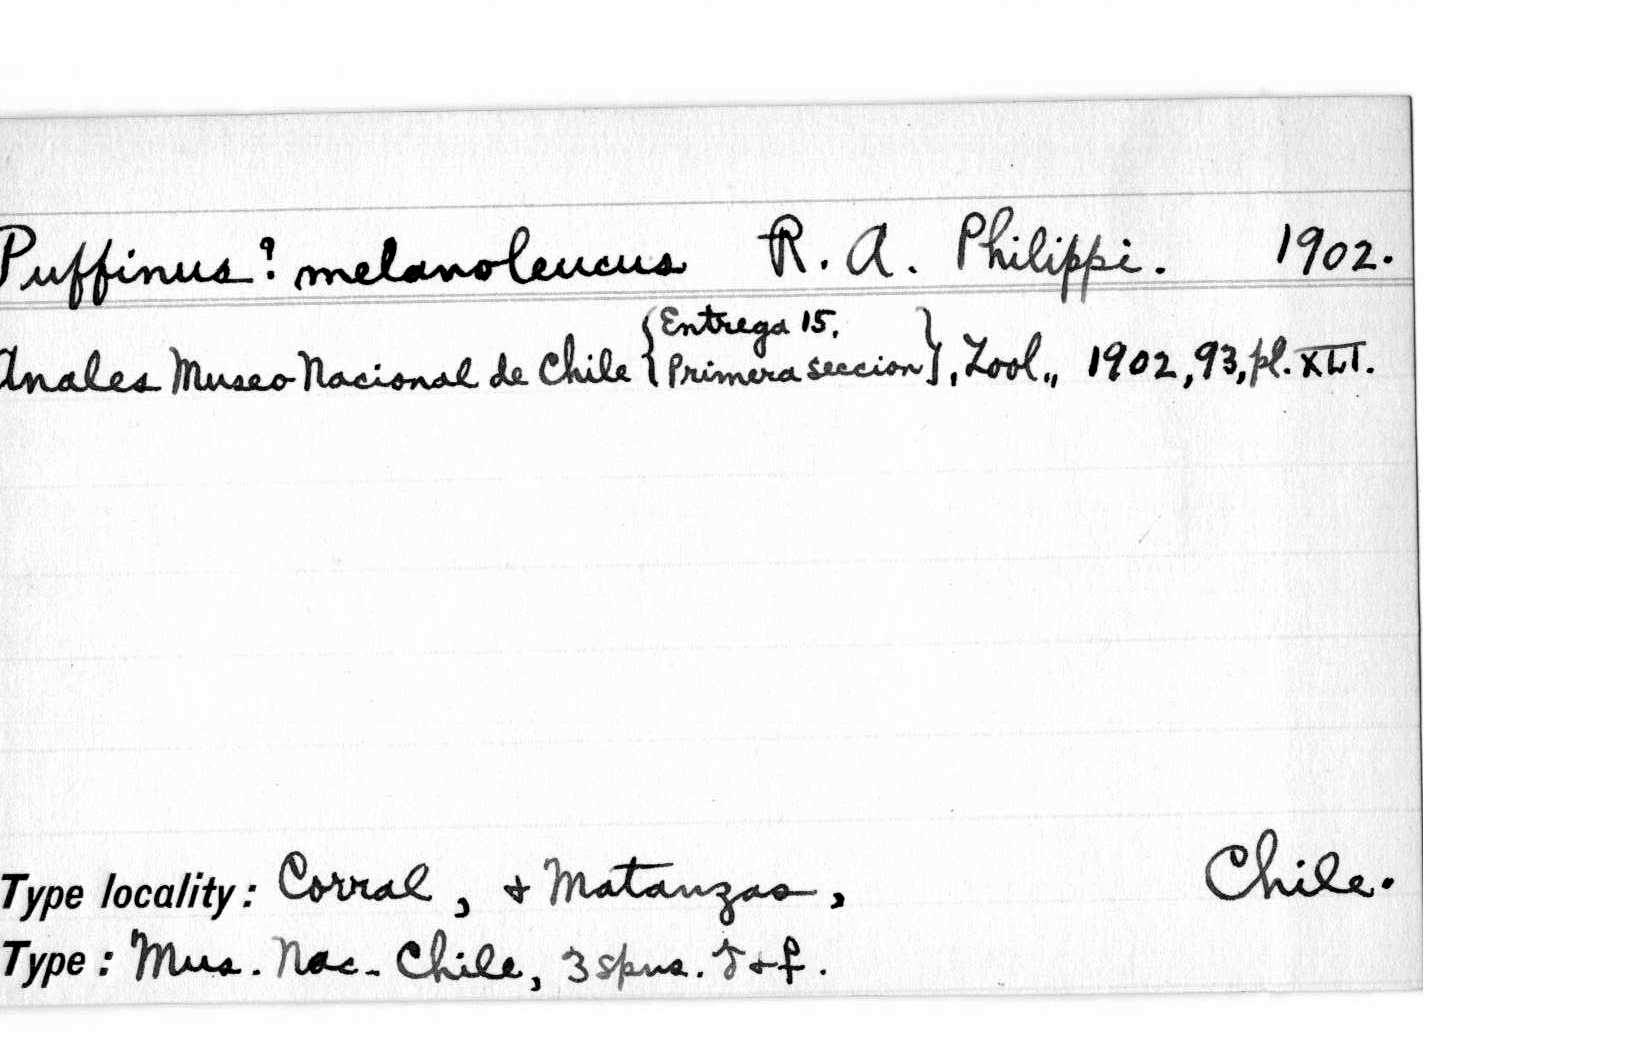 Puffinus? melanoleucus R. A. Philippi. 1902.
Anales Museo Nacional de Chile {Entrega 15, Primera seccion}, Zool., 1902, 93, pl. XLI.
Type locality: Corral, & Matanzas, Chile.
Type: Mus. Nac. Chile, 3 spns. ♂ & ♀.